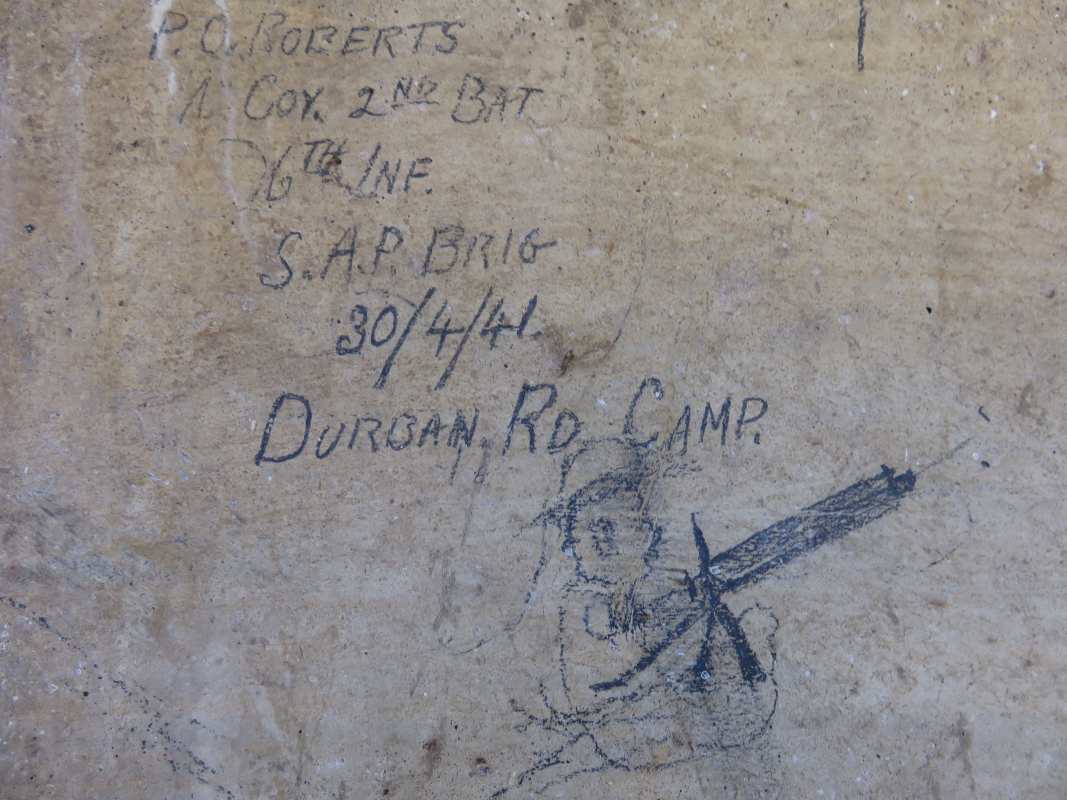 P.O. ROBERTS
A COY. 2ND BAT
6TH INF.
S.A.P. BRIG
30/4/41.
DURBAN RD CAMP.